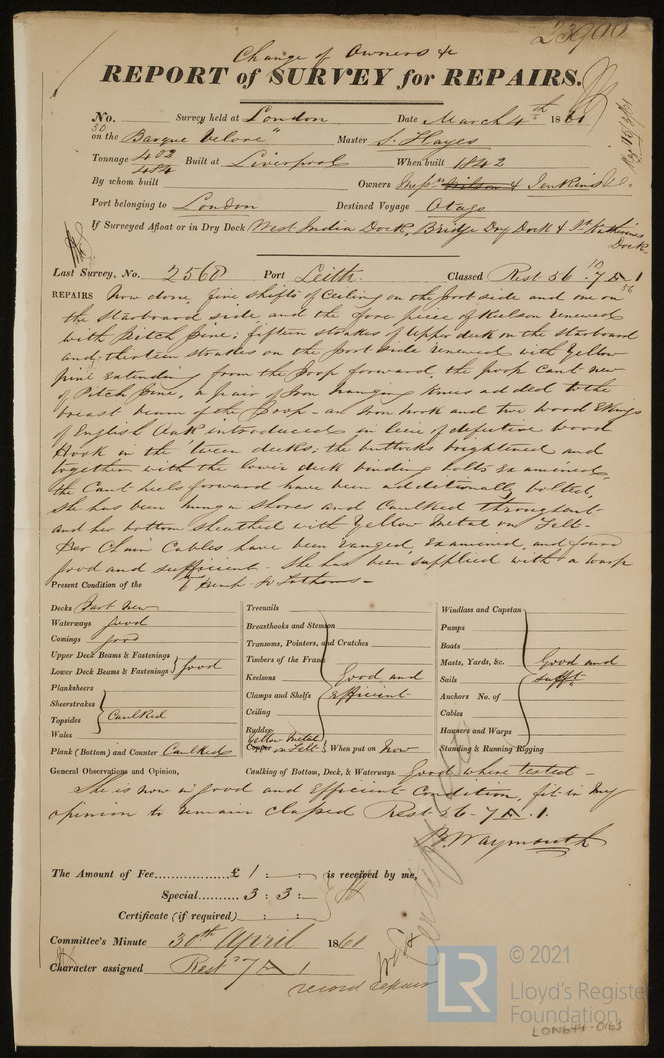 23900
Change of Owners &c
REPORT of SURVEY for REPAIRS.
No. Survey held at London Date March 4th 1861
on the Barque Velore" Master S. Hayes
Tonnage 402 Built at Liverpool When built 1842
484
By whom built Owners Messrs Wilson & Jenkins
Port belonging to London Destined Voyage Otago
If Surveyed Afloat or in Dry Dock West India Dock, Bridge Dry Dock & St Katherines Dock.
Last Survey, No. 2560 Port Leith Classed Rest 56 10 7 A 1
56
REPAIRS Now done, five shifts of Ceiling on the port side and one on
the starboard side, and the fore piece of Kelson renewed
with Pitch pine; fifteen strakes of Upper deck on the starboard
and thirteen strakes on the port side renewed with Yellow
pine extending from the Poop forward, the poop Cant new
of Pitch Pine, a pair of Iron hanging Knees added to the
breast beam of the Poop - an Iron hook and two wood Ekings
of English Oak introduced in lieu of defective wood
Hook in the 'tween decks; the buttocks brightened and
together with the lower deck binding bolts Examined,
the Cant heels forward have been additionally bolted,
she has been hung in shores and Caulked throughout
and her bottom sheathed with Yellow Metal on Felt-
Her Chain Cables have been ranged, Examined, and found
good and sufficient - She has been supplied with a warp
Present Condition of the Hemp fathoms -
Decks Part New
Waterways good
Comings good
Upper Deck Beams & Fastenings
Lower Deck Beams & Fastenings good
Planksheers
Sheerstrakes
Topsides Caulked
Wales
Plank (Bottom) and Counter Caulked
Treenails
Breasthooks and Stemson
Transoms, Pointers, and Crutches
Timbers of the Frame
Keelsons Good and
Clamps and Shelfs Efficient
Ceiling
Rudder
Yellow Metal
Copper on Felt When put on Now
Windlass and Capstan
Pumps
Boats
Masts, Yards, &c. Good and
Sails sufft.
Anchors No. of
Cables
Hawsers and Warps
Standing & Running Rigging
General Observations and Opinion, Caulking of Bottom, Deck, & Waterways. Good where tested -
She is now in good and Efficient Condition, fit in my
opinion to remain classed Rest 56 - 7 A . 1.
B. Waymouth
The Amount of Fee £ 1 : : is received by me,
Special 3 : 3 : -
Certificate (if required) : :
Committee's Minute 30th April 1861
Character assigned Rest 7 A 1
record repairs
© 2021
LR
Lloyd's Register
Foundation
LON644-0163